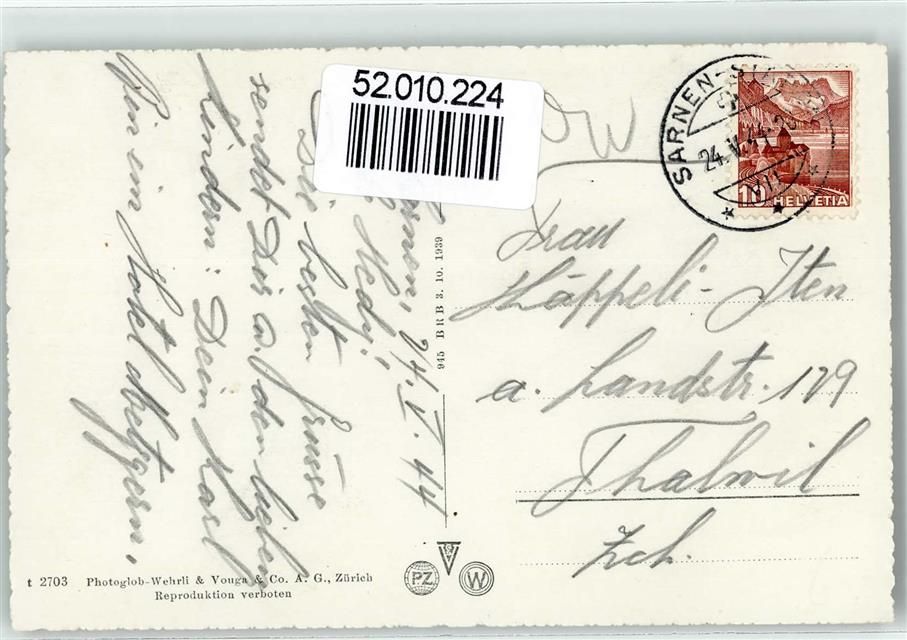 52.010.224
Sarnen, 24. V. 44
Hedy,
Die besten Grüsse
sendet Dir u. den lieben
Kindern: Dein Karl
Bin im Hotel Metzgern.
945 BRB 3. 10. 1939
SARNEN
24.V.44
VII
10 HELVETIA
Frau
Käppeli-Iten
a. Landstr. 179
Thalwil
Zch.
PZ
W
t 2703 Photoglob-Wehrli & Vouga & Co. A. G., Zürich
Reproduktion verboten